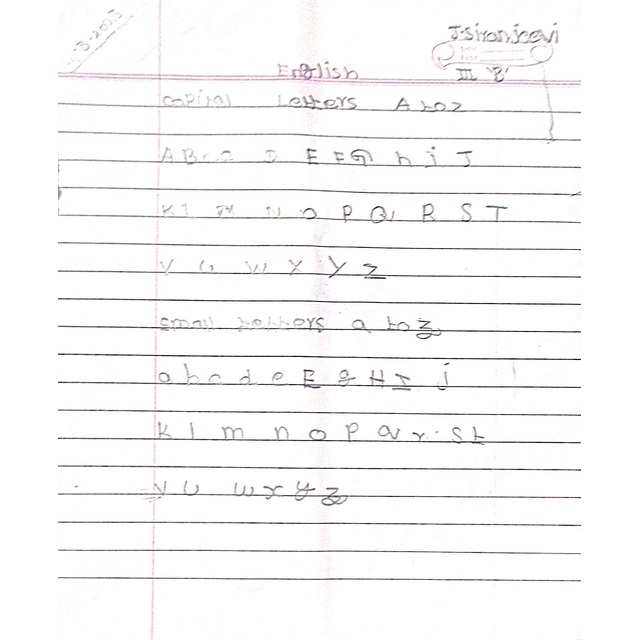 J.siranjeevi
III 'B'
English
capital Letters A to z
A B C D E F G h i J
K l M N O P Q R S T
V U W X Y Z
small letters a to z
a b c d e E g H I j
k l m n o p q r s t
v u w x y z